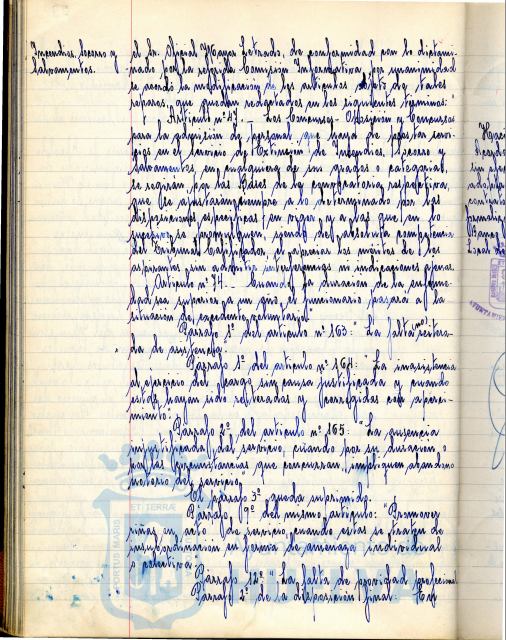 Incendios, Socorro y
Salvamentos.
el Sr. Oficial Mayor Letrado, de conformidad con lo dictami-
nado por la referida Comisión Informativa, por unanimidad
se acordó la modificación de los artículos objeto de tales
reparos, que quedan redactados en los siguientes términos:"
Artículo nº 47.- Los Concursos-Oposición y Concursos
para la admisión de personal que haya de prestar servi-
cios en el Servicio de Extinción de Incendios, Socorro y
Salvamentos, en cualquiera de sus grados o categorías,
se regirán por las Bases de la convocatoria respectiva,
que se ajustarán siempre a lo determinado por las
disposiciones específicas en vigor y a las que en lo
sucesivo se promulguen, siendo de absoluta competencia
del Tribunal Calificador, el apreciar los méritos de los
aspirantes sin admitir sugerencias ni indicaciones ajenas.
Artículo nº 74.- Cuando la duración de la enferme-
dad sea superior a un año, el funcionario pasará a la
situación de excedente voluntario"
Párrafo 1º del artículo nº 163: "La falta no reitera-
da de asistencia.
Párrafo 1º del artículo nº 164: "La inasistencia
al ejercicio del cargo sin causa justificada y cuando
estas hayan sido reiteradas y corregidas con aperci-
bimiento."
Párrafo 2º del artículo nº 165: "La ausencia
injustificada del servicio, cuando por su duración o
por las circunstancias que concurran, impliquen abandono
notorio del servicio"
El párrafo 3º queda suprimido.
Párrafo 9º del mismo artículo: "Promover
riñas en acto de servicio, cuando estas se traten de
insubordinación en forma de amenaza individual
o colectiva.
Párrafo 12º "La falta de probidad profesional
Párrafo 2º de la disposición final: "En
PORTUS MARIS
ET TERRÆ